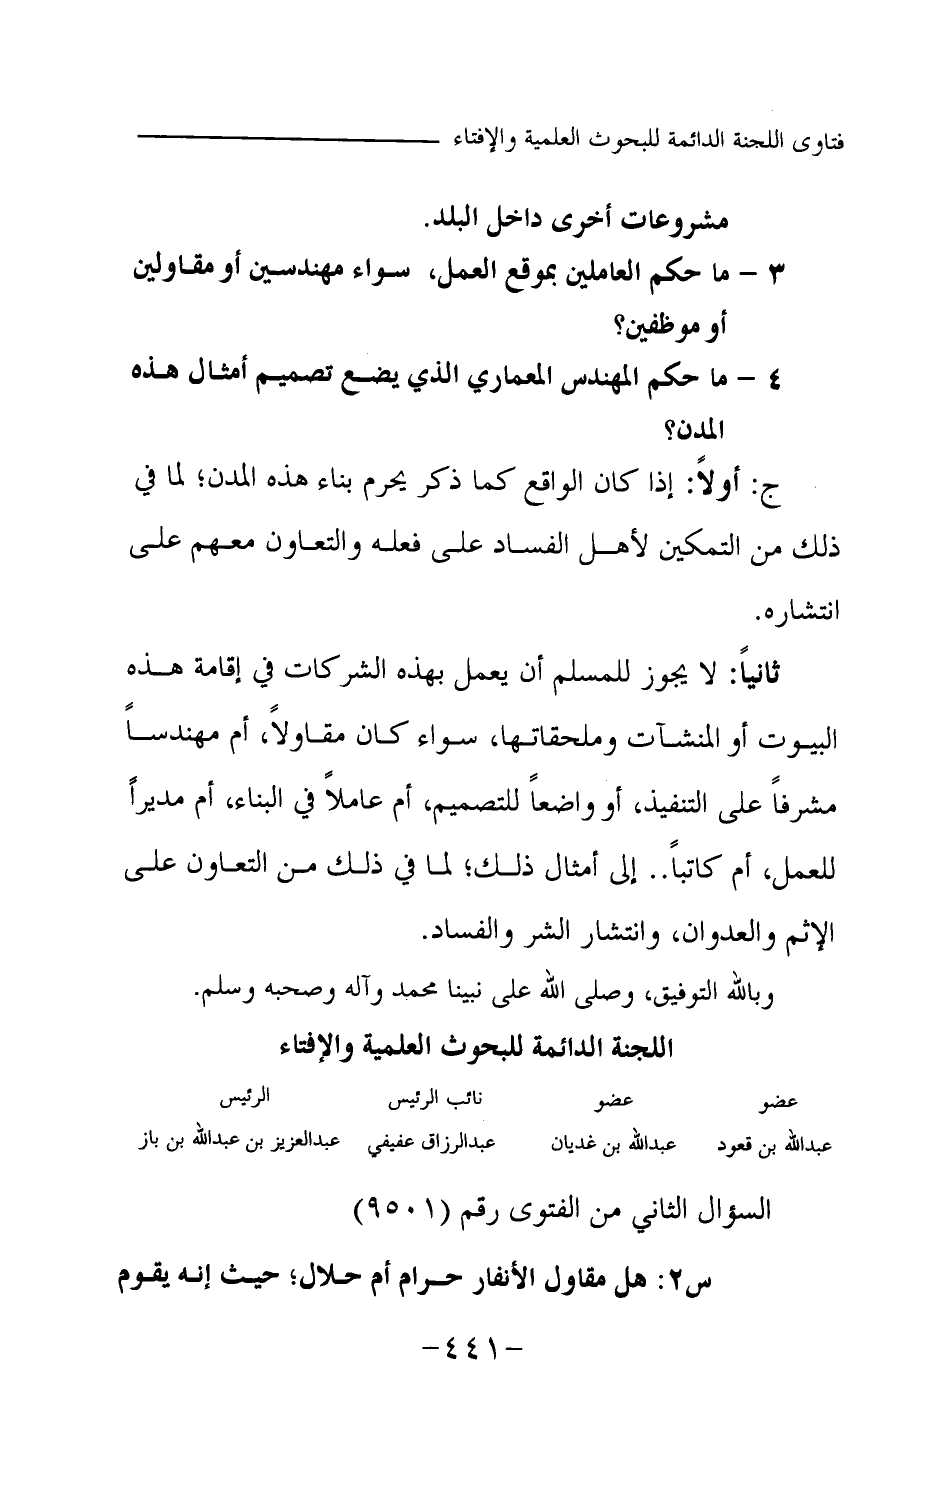 فتاوى اللجنة الدائمة للبحوث العلمية والإفتاء
مشروعات أخرى داخل البلد.
٣ - ما حكم العاملين بموقع العمل، سواء مهندسين أو مقاولين
أو موظفين؟
٤ - ما حكم المهندس المعماري الذي يضع تصميم أمثال هذه
المدن؟
ج: أولاً: إذا كان الواقع كما ذكر يحرم بناء هذه المدن؛ لما في
ذلك من التمكين لأهل الفساد على فعله والتعاون معهم على
انتشاره.
ثانياً: لا يجوز للمسلم أن يعمل بهذه الشركات في إقامة هذه
البيوت أو المنشآت وملحقاتها، سواء كان مقاولاً، أم مهندساً
مشرفاً على التنفيذ، أو واضعاً للتصميم، أم عاملاً في البناء، أم مديراً
للعمل، أم كاتباً.. إلى أمثال ذلك؛ لما في ذلك من التعاون على
الإثم والعدوان، وانتشار الشر والفساد.
وبالله التوفيق، وصلى الله على نبينا محمد وآله وصحبه وسلم.
اللجنة الدائمة للبحوث العلمية والإفتاء
عضو عضو نائب الرئيس الرئيس
عبدالله بن قعود عبدالله بن غديان عبدالرزاق عفيفي عبدالعزيز بن عبدالله بن باز
السؤال الثاني من الفتوى رقم (٩٥٠١)
س٢: هل مقاول الأنفار حرام أم حلال؛ حيث إنه يقوم
-٤٤١-